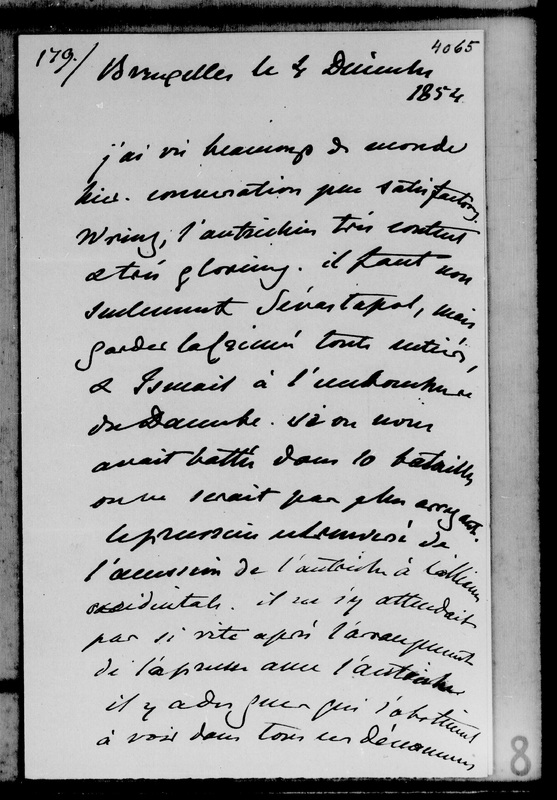 179./
4065
Bruxelles le 4 Décembre
1854
j'ai vu beaucoup de monde
hier. conversation peu satisfactory.
l'autrichien très content
& très glorieux. il faut non
seulement Sévastopol, mais
garder la Crimée toute entière,
& Ismail à l'embouchure
du Danube. si on nous
avait battus dans 10 batailles
on ne serait pas plus arrogant.
le prussien renversé de
l'accession de l'autriche à l'alliance
occidentale. il ne s'y attendait
pas si vite après l'arrangement
de la prusse avec l'autriche
il y a des gens qui s'obstinent
à voir dans tous ces dénouments
8